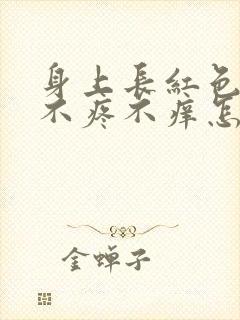 身上長紅色
不疼不痒怎
金蝉子